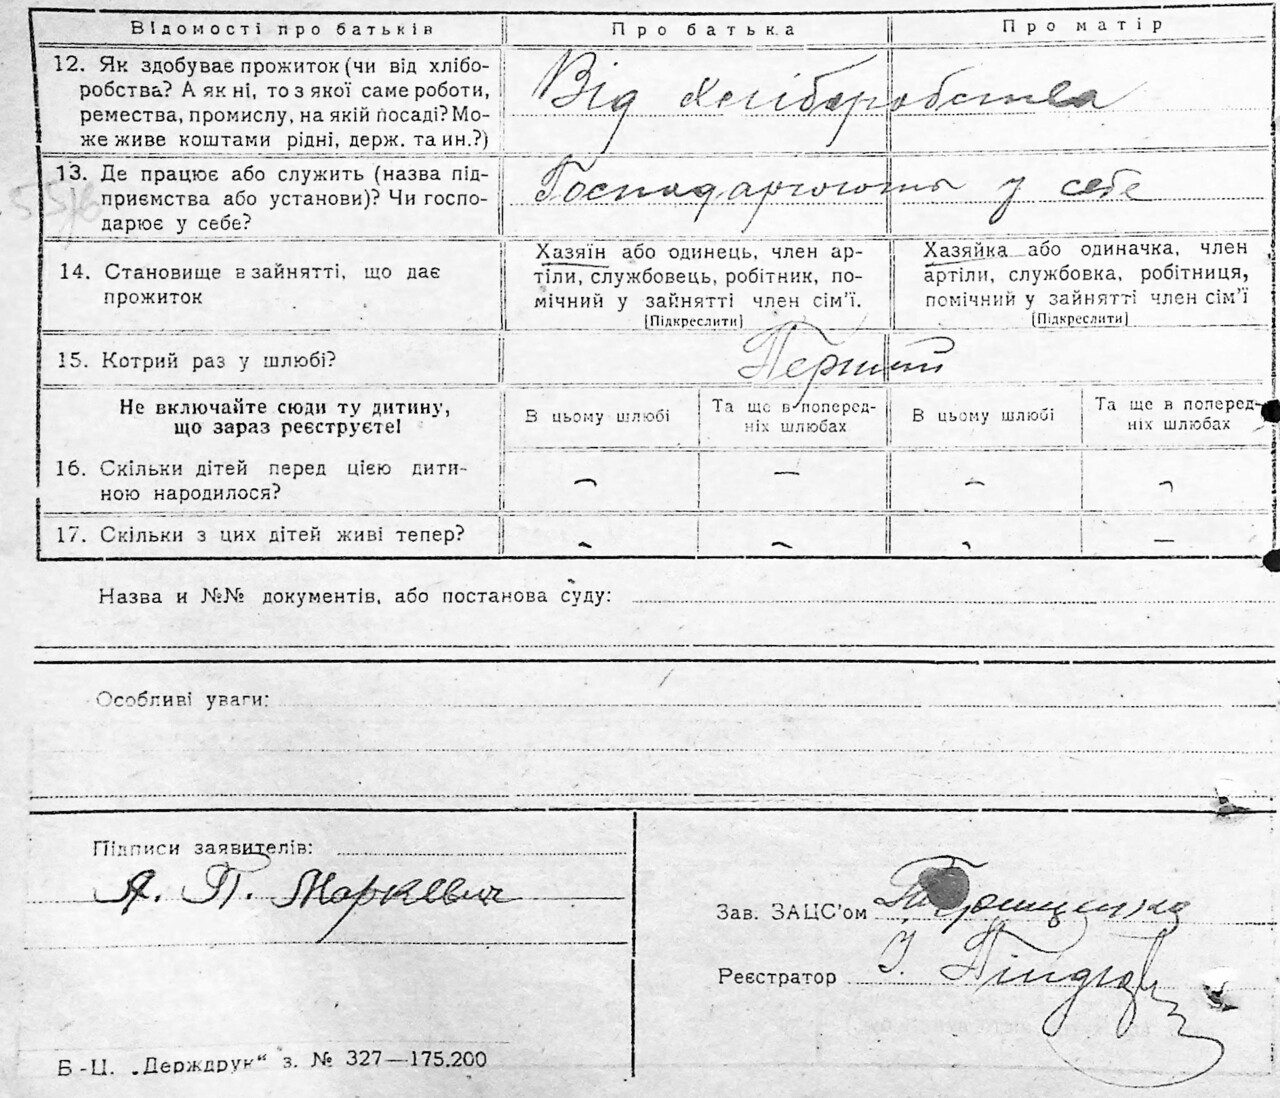 Відомості про батьків Про батька Про матір
12. Як здобуває прожиток (чи від хлібо-
робства? А як ні, то з якої саме роботи,
ремества, промислу, на якій посаді? Мо-
же живе коштами рідні, держ. та ин.?)
Від хліборобства
13. Де працює або служить (назва під-
приємства або установи)? Чи госпо-
дарює у себе?
Господарюють у себе
14. Становище в зайнятті, що дає
прожиток
Хазяїн або одинець, член ар-
тіли, службовець, робітник, по-
мічний у зайнятті член сім'ї.
(Підкреслити)
Хазяйка або одиначка, член
артіли, службовка, робітниця,
помічний у зайнятті член сім'ї
(Підкреслити)
15. Котрий раз у шлюбі?
Перший
Не включайте сюди ту дитину,
що зараз реєструєте!
В цьому шлюбі
Та ще в поперед-
ніх шлюбах
В цьому шлюбі
Та ще в поперед-
ніх шлюбах
16. Скільки дітей перед цією дити-
ною народилося?
– – – –
17. Скільки з цих дітей живі тепер?
– – – –
Назва и №№ документів, або постанова суду:
Особливі уваги:
Підписи заявителів:
А. П. Маркевич
Зав. ЗАЦС'ом
Реєстратор І.
Б-Ц. „Держдрук“ з. № 327—175.200